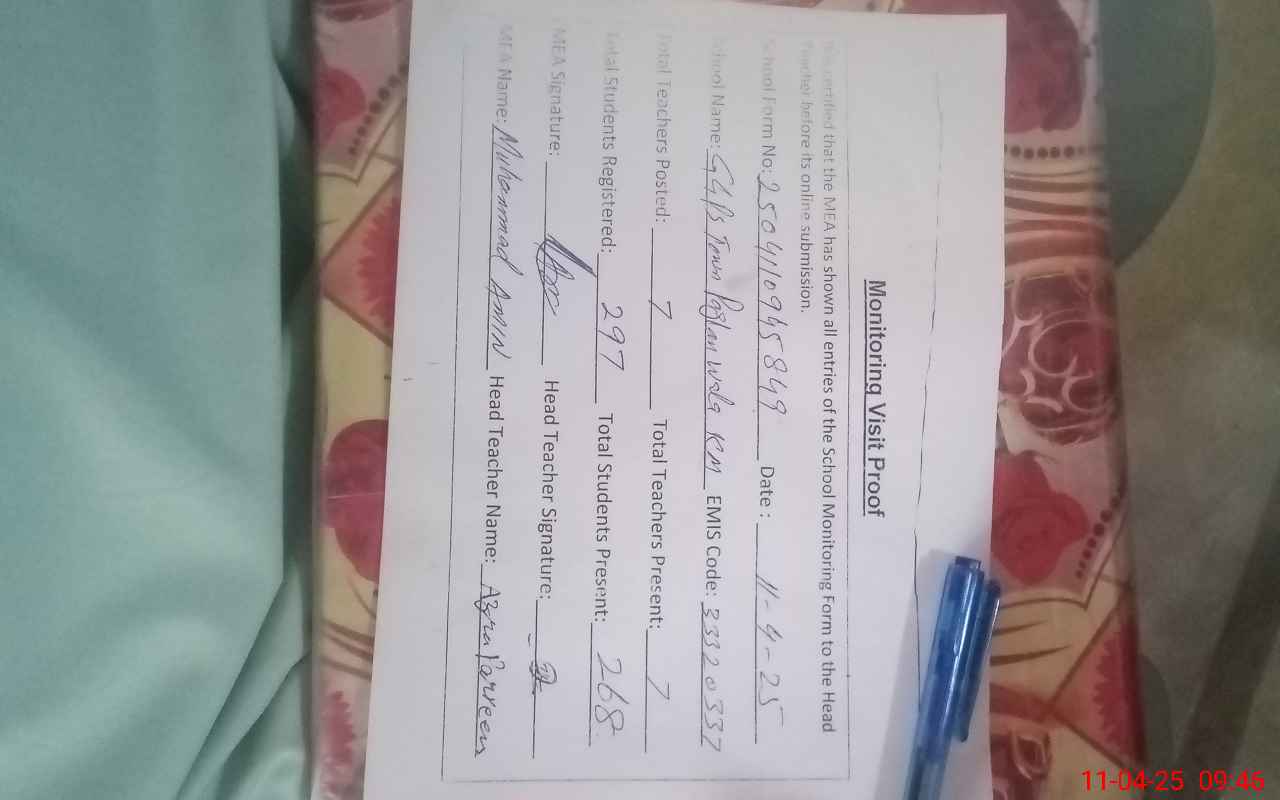 Monitoring Visit Proof
It is certified that the MEA has shown all entries of the School Monitoring Form to the Head
Teacher before its online submission.
School Form No: 250411094945849 Date : 11-4-25
School Name: GGPS Town Paglan wala KM EMIS Code: 33320337
Total Teachers Posted: 7 Total Teachers Present: 7
Total Students Registered: 297 Total Students Present: 268
MEA Signature: Head Teacher Signature:
MEA Name: Muhammad Amin Head Teacher Name: Azra Parveen
11-04-25 09:46